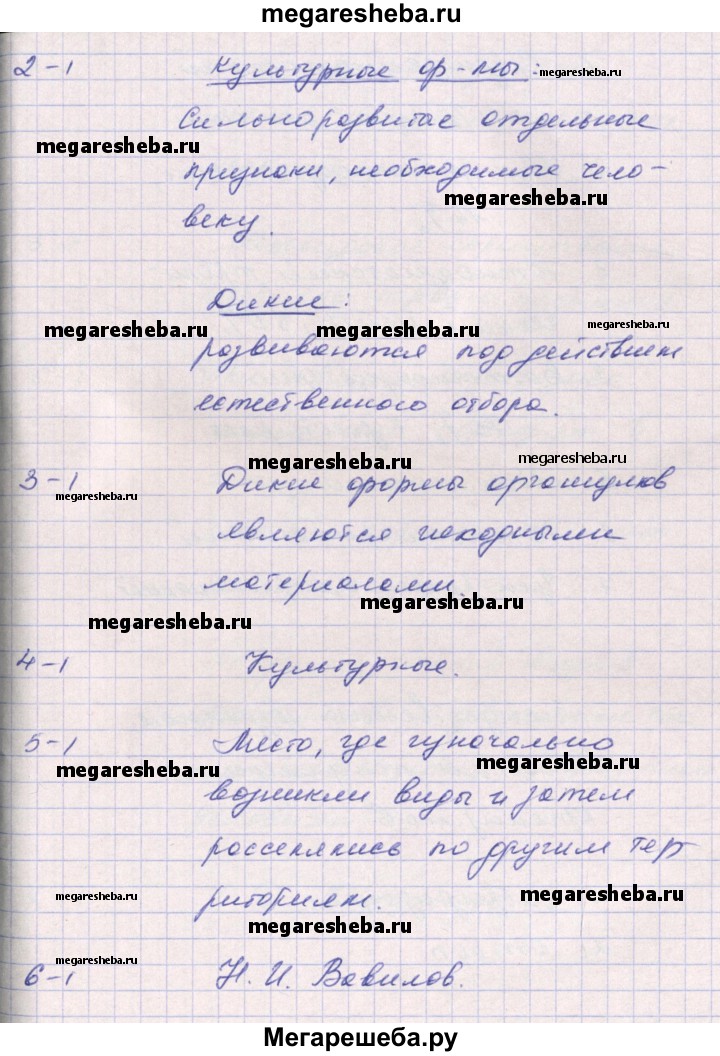 megaresheba.ru
2-1 Культурные ф-мы: megaresheba.ru
Сильно развитые отдельные
megaresheba.ru
признаки, необходимые чело-
megaresheba.ru
веку.
Дикие:
megaresheba.ru megaresheba.ru megaresheba.ru
развиваются под действием
естественного отбора.
megaresheba.ru megaresheba.ru
3-1 Дикие формы организмов
megaresheba.ru
являются исходными
материалами.
megaresheba.ru
megaresheba.ru
4-1 Культурные.
5-1 Место, где изначально
megaresheba.ru megaresheba.ru
возникли виды и затем
расселялись по другим тер
megaresheba.ru megaresheba.ru
риториям.
megaresheba.ru
megaresheba.ru
6-1 Н. И. Вавилов.
Мегарешеба.ру